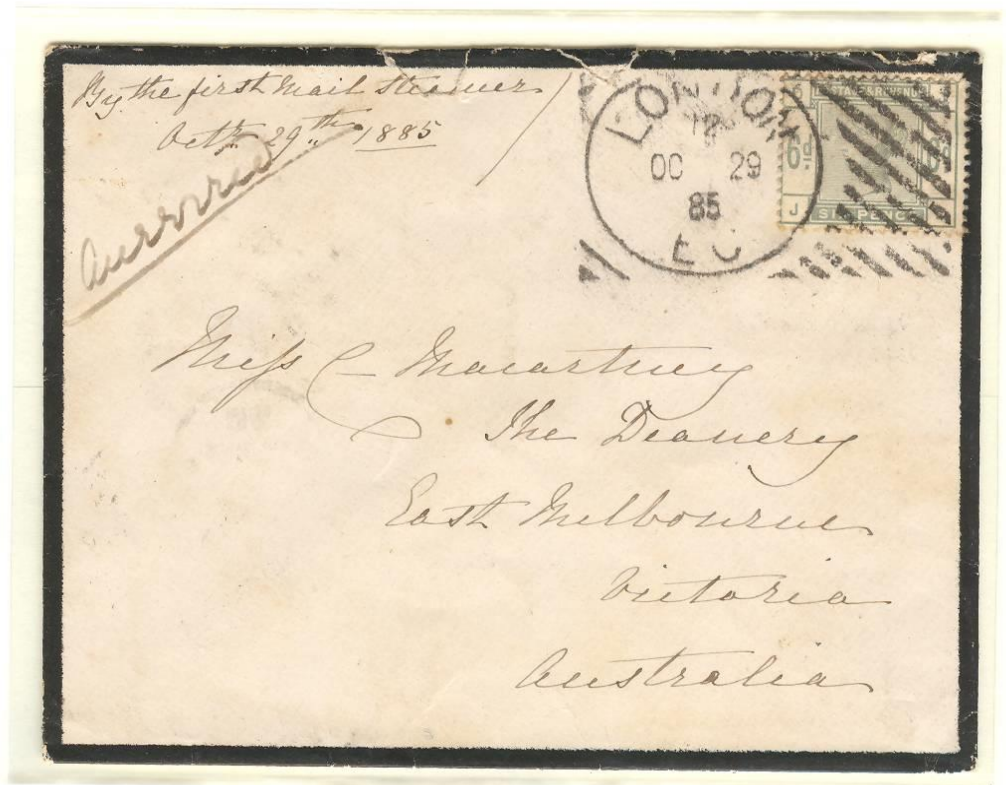 By the first Mail Steamer
Octr 29th 1885
LONDON
12
OC 29
85
EC
POSTAGE & REVENUE
6d.
J
SIX PENCE
Answered
Miss C Macartney
The Deanery
East Melbourne
Victoria
Australia